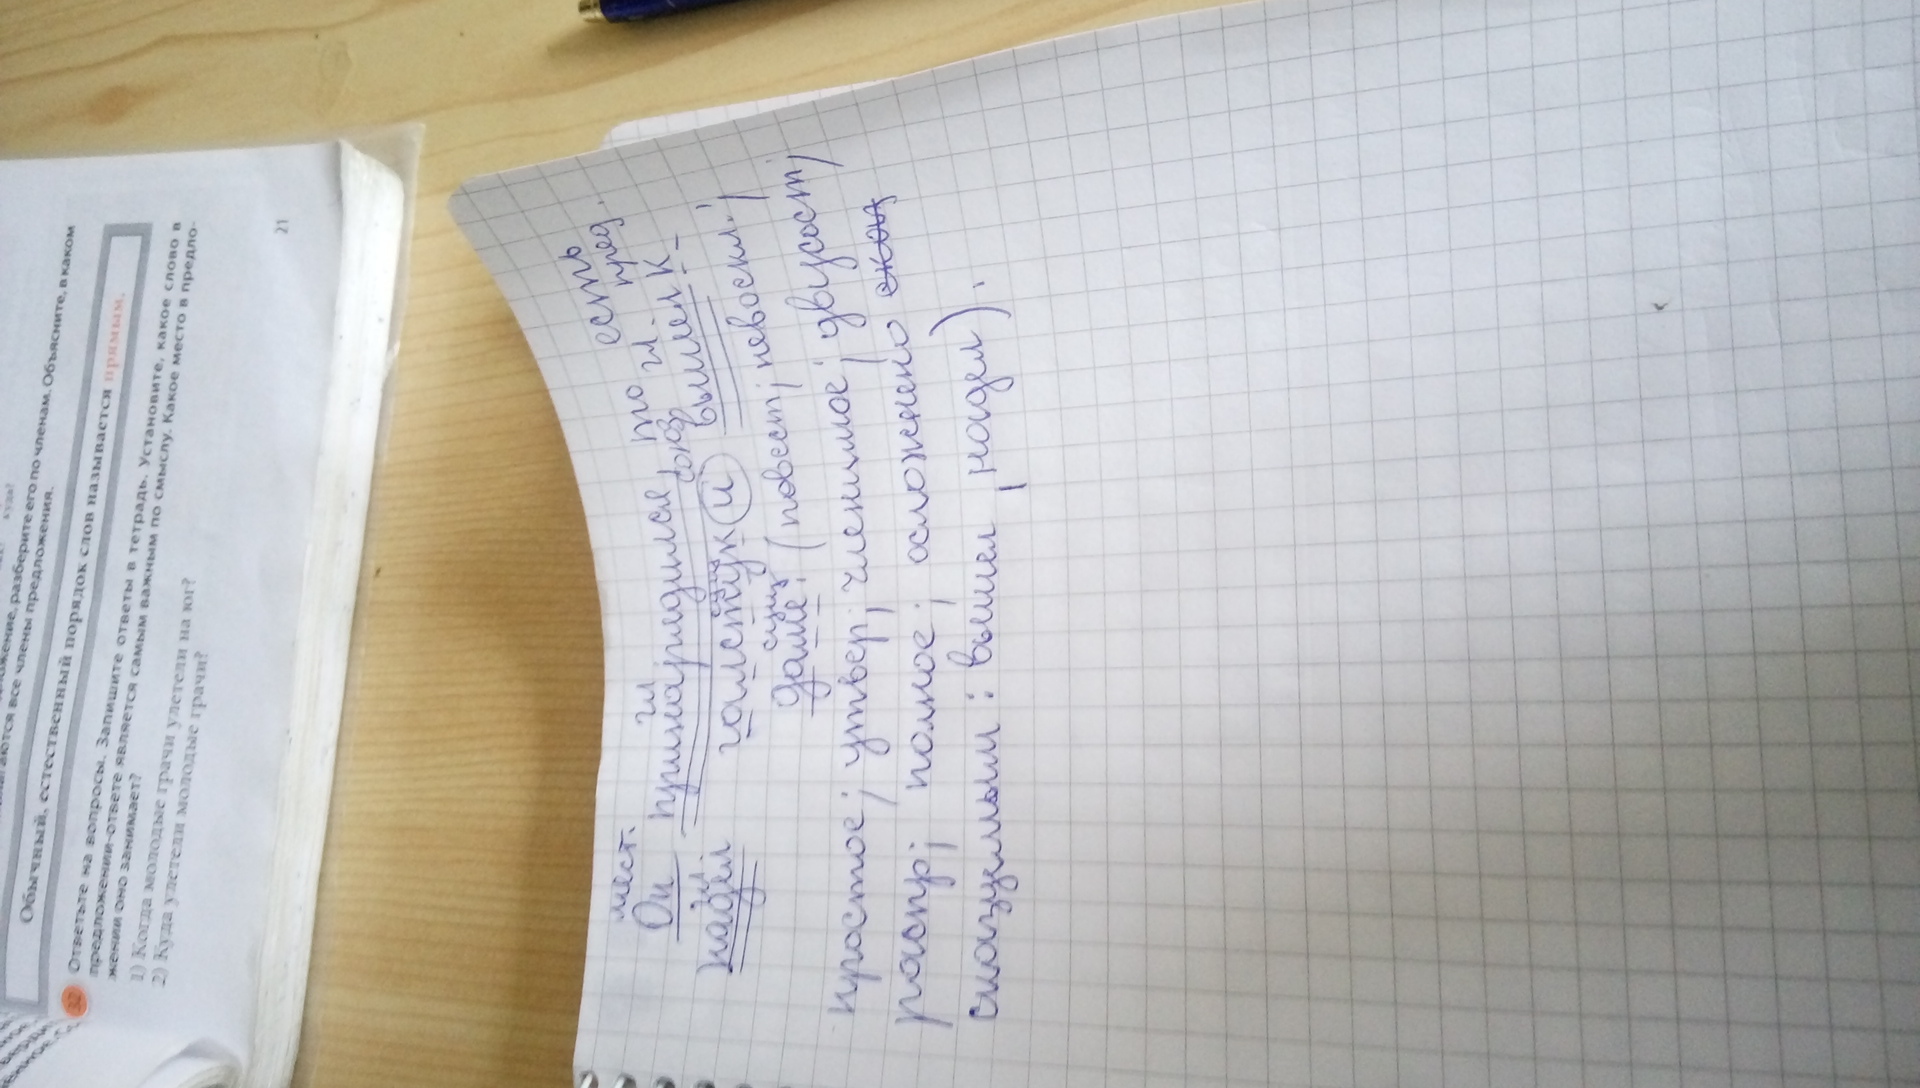 куда?
ложение, разберите его по членам. Объясните, в каком
лагаются все члены предложения.
Обычный, естественный порядок слов называется прямым.
32 Ответьте на вопросы. Запишите ответы в тетрадь. Установите, какое слово в
предложении-ответе является самым важным по смыслу. Какое место в предло-
жении оно занимает?
1) Когда молодые грачи улетели на юг?
2) Куда улетели молодые грачи?
21
мест. гл
Он принарядился, то есть
гл сущ союз гл. пред.
надел галстук и вышел к
сущ
даме. (повест; невоскл.;
простое; утвер; членимое; двусост;
распр; полное; осложнено
сказуемым: вышел, надел).